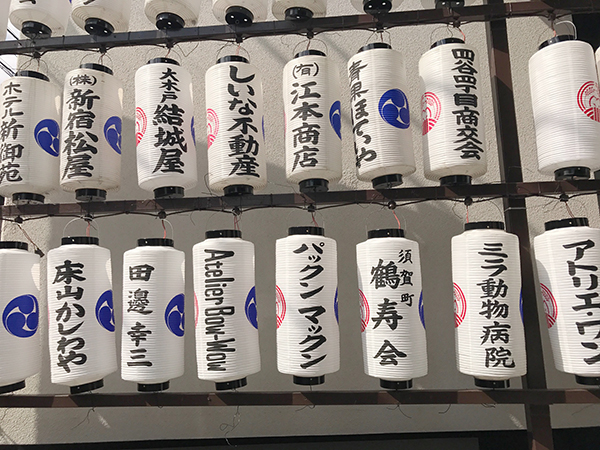 ホテル新御苑
㈱新宿松屋
大木戸結城屋
しいな不動産
㈲江本商店
青果ほていや
四谷四丁目商交会
床山かしわや
田邊幸三
Atelier Bow-Wow
パックンマックン
須賀町鶴寿会
ミラ動物病院
アトリエ・ワン